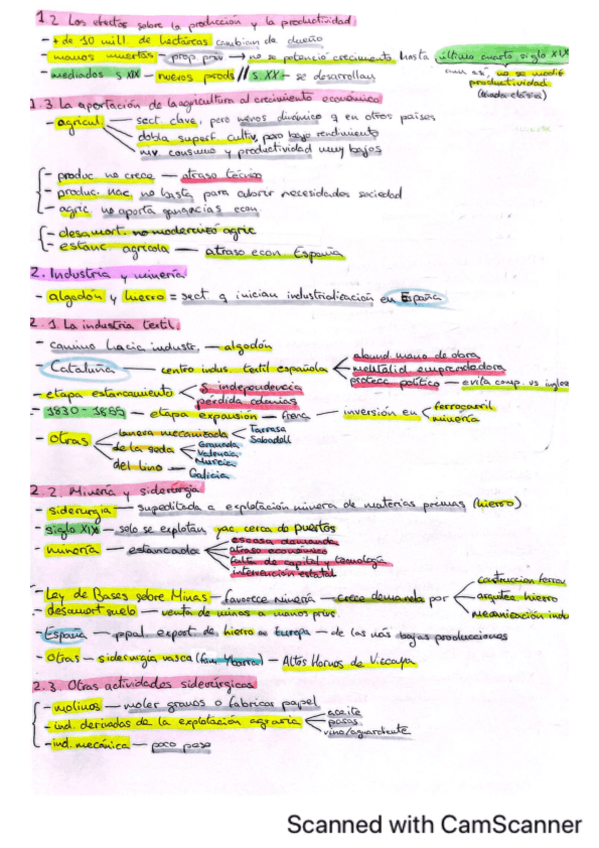 1.2 Los efectos sobre la producción y la productividad
- + de 10 mill. de hectáreas cambian de dueño
- manos muertas - prop. priv → no se potenció crecimiento hasta último cuarto siglo XIX
- mediados s XIX - nuevos prods // s XX - se desarrollan
aun así, no se modif productividad
1.3 La aportación de la agricultura al crecimiento económico
- agricul sect. clave, pero menos dinámico q en otros países
dobla superf. cultiv, pero bajo rendimiento
niv. consumo y productividad muy bajos
- produc no crece — atraso técnico
- produc. nac. no basta para cubrir necesidades sociedad
- agric. no aporta ganancias econ.
- desamort. no modernizó agric
- estanc agrícola — atraso econ. España
2. Industria y minería
- algodón y hierro = sect q inician industrialización en España
2.1 La industria textil.
- camino hacia industr. — algodón
- Cataluña — centro indus. textil española
abund. mano de obra
mentalid emprendedora
protecc político - evita comp. vs ingles
- etapa estancamiento
g independencia
pérdida colonias
- 1830 - 1869 — etapa expansión — frena — inversión en
ferrocarril
minería
- otras
lanera mecanizada
Tarrasa
Sabadell
de la seda
Granada
Valencia
Murcia
del lino — Galicia
2.2. Minería y siderurgia
- siderurgia — supeditada a explotación minera de materias primas (hierro)
- siglo XIX — solo se explotan yac. cerca de puertos
- minería — estancada
escasa demanda
atraso económico
falta de capital y tecnología
intervención estatal
- Ley de Bases sobre Minas — favorece minería — crece demanda por
construccion ferrov
arquitec hierro
mecanización indu
- desamort suelo — venta de minas a manos priv.
- España — ppal. export. de hierro en Europa - de las más bajas producciones
- otras — siderurgia vasca (fam. Ybarra) — Altos Hornos de Vizcaya
2.3. Otras actividades siderúrgicas
- molinos — moler granos o fabricar papel
- ind. derivadas de la explotación agraria
aceite
pasas
vino/aguardiente
- ind. mecánica — poco peso
Scanned with CamScanner